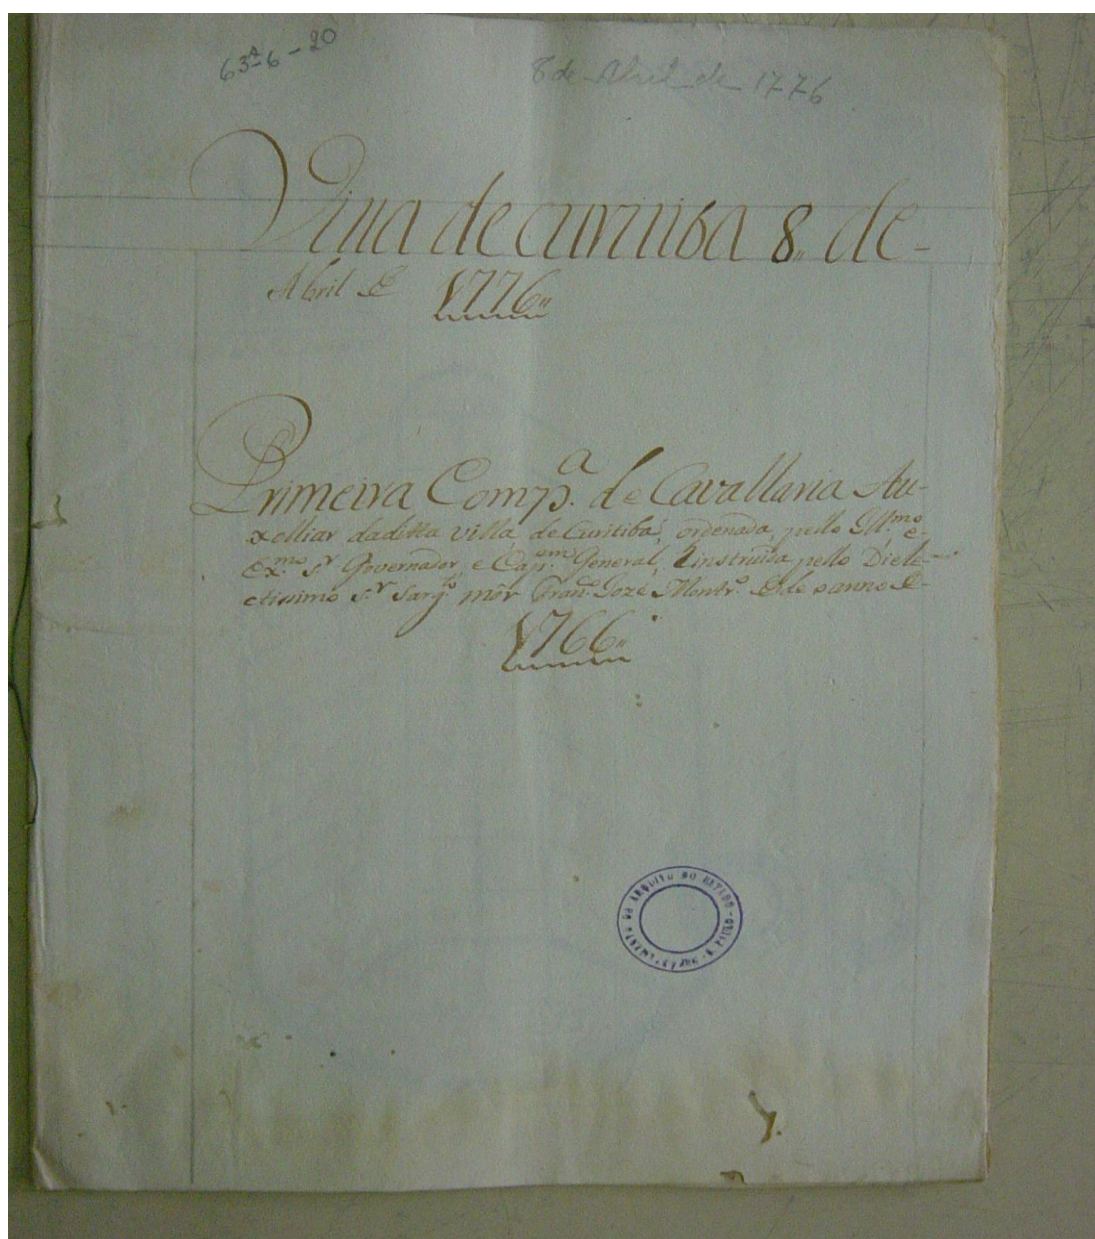 63A-6-20
8 de Abril de 1776
Villa de curitiba 8,, de
Abril de 1776,,
Primeira Comp.a de Cavallaria Au-
xelliar daditta villa, de Curitiba, ordenada, pello Ill.mo e
Ex.mo S.r Governador, e Cap.em General, instruida pello Diele-
ctissimo S.r Sarg.to mór Fran.co Jozé Montr.o de o anno de
1766,,
ARQUIVO DO ESTADO S. PAULO